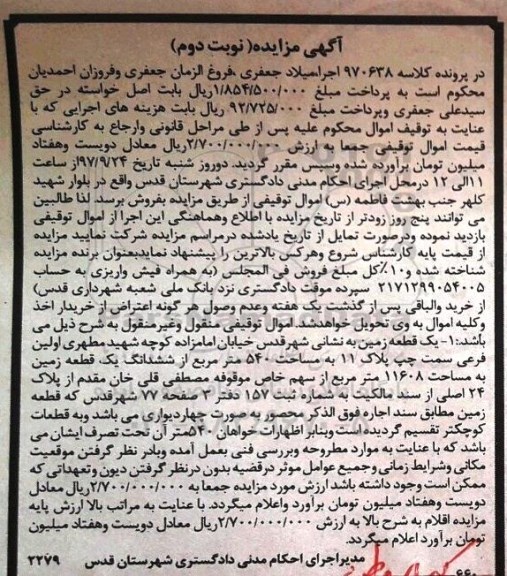 آگهی مزایده( نوبت دوم)
در پرونده کلاسه ۹۷۰۶۳۸ اجرا،میلاد جعفری ،فروغ الزمان جعفری وفروزان احمدیان
محکوم است به پرداخت مبلغ ۱/۸۵۴/۵۰۰/۰۰۰ریال بابت اصل خواسته در حق
سیدعلی جعفری وپرداخت مبلغ ۹۲/۷۲۵/۰۰۰ ریال بابت هزینه های اجرایی که با
عنایت به توقیف اموال محکوم علیه پس از طی مراحل قانونی وارجاع به کارشناسی
قیمت اموال توقیفی جمعا به ارزش ۲/۷۰۰/۰۰۰/۰۰۰ریال معادل دویست وهفتاد
میلیون تومان برآورد شده وسپس مقرر گردید. دوروز شنبه تاریخ ۹۷/۹/۲۴از ساعت
۱۱الی ۱۲ درمحل اجرای احکام مدنی دادگستری شهرستان قدس واقع در بلوار شهید
کلهر جنب بهشت فاطمه (س) اموال توقیفی از طریق مزایده بفروش برسد. لذا طالبین
می توانند پنج روز زودتر از تاریخ مزایده با اطلاع وهماهنگی این اجرا از اموال توقیفی
بازدید نموده ودرصورت تمایل از تاریخ یادشده درمراسم مزایده شرکت نمایید مزایده
از قیمت پایه کارشناس شروع وهرکس بالاترین را پیشنهاد نمایدبعنوان برنده مزایده
شناخته شده و۱۰٪کل مبلغ فروش فی المجلس (به همراه فیش واریزی به حساب
۲۱۷۱۲۹۹۰۵۴۰۰۵ سپرده موقت دادگستری نزد بانک ملی شعبه شهرداری قدس)
از خرید والباقی پس از گذشت یک هفته وعدم وصول هر گونه اعتراض از خریدار اخذ
وکلیه اموال به وی تحویل خواهدشد. اموال توقیفی منقول وغیرمنقول به شرح ذیل می
باشد:۱- یک قطعه زمین به نشانی شهرقدس خیابان امامزاده کوچه شهید مطهری اولین
فرعی سمت چپ پلاک ۱۱ به مساحت ۵۴۰ متر مربع از ششدانگ یک قطعه زمین
به مساحت ۱۱۶۰۸ متر مربع از سهم خاص موقوفه مصطفی قلی خان مقدم از پلاک
۲۴ اصلی از سند مالکیت به شماره ثبت ۱۵۷ دفتر ۳ صفحه ۷۷ شهرقدس که قطعه
زمین مطابق سند اجاره فوق الذکر محصور به صورت چهاردیواری می باشد وبه قطعات
کوچکتر تقسیم گردیده است وبنابر اظهارات خواهان ۵۴۰متر آن تحت تصرف ایشان می
باشد که با عنایت به موارد مطروحه وبررسی فنی بعمل آمده وبادر نظر گرفتن موقعیت
مکانی وشرایط زمانی وجمیع عوامل موثر درقضیه بدون درنظر گرفتن دیون وتعهداتی که
ممکن است وجود داشته باشد ارزش مورد مزایده جمعا به ۲/۷۰۰/۰۰۰/۰۰۰ریال معادل
دویست وهفتاد میلیون تومان برآورد واعلام میگردد. با عنایت به مراتب بالا ارزش پایه
مزایده اقلام به شرح بالا به ارزش ۲/۷۰۰/۰۰۰/۰۰۰ریال معادل دویست وهفتاد میلیون
تومان برآورد اعلام میگردد.
مدیراجرای احکام مدنی دادگستری شهرستان قدس ۲۲۷۹